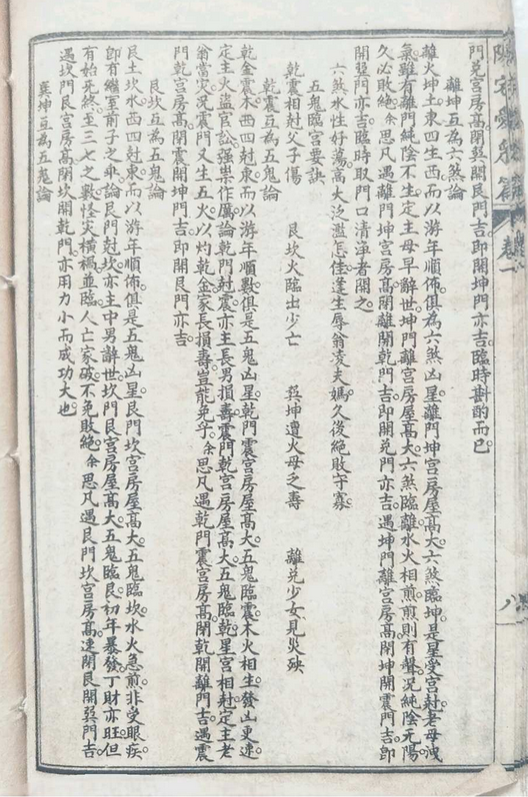 門兌宮房高閉巽開艮門吉即開坤門亦吉臨時斟酌而已
離坤互為六煞論
離火坤土東四生西而以游年順佈俱為六煞凶星離門坤宮房屋高大六煞臨坤是星受宮尅老母洩
氣雖有離門純陰不生定主母早辭世坤門離宮房屋高大六煞臨離水火相煎煎則有聲況純陰无陽
久必敗絶余思凡遇離門坤宮房高閉離開乾門吉即開兌門亦吉遇坤門離宮房高閉坤開震門吉即
開巽門亦吉臨時取門口清淨者開之
六煞水性好蕩高大泛濫怎佳逢生辱翁凌夫媽久後絶敗守寡
五鬼臨宮要訣
乾震相尅父子傷 艮坎火臨出少亡 巽坤遭火母之壽 離兌少女見災殃
乾震互為五鬼論
乾金震木西四尅東而以游年順數俱是五鬼凶星乾門震宮房屋高大五鬼臨震木火相生發凶更速
定主火盜官訟强祟作厲論乾門尅震亦主長男損壽震門乾宮房屋高大五鬼臨乾星宮相尅定主老
翁當災况震門又生五火以灼乾金家長損壽豈能免乎余思凡遇乾門震宮房高閉乾開離門吉遇震
門乾宮房高閉震開坤門吉即開艮門亦吉
艮坎互為五鬼論
艮土坎水西四尅東而以游年順佈俱是五鬼凶星艮門坎宮房屋高大五鬼臨坎水火急煎非受眼疾
即有繼室前子之乖論艮門尅坎亦主中男辭世坎門艮宮房屋高大五鬼臨艮初年暴發丁財亦旺但
有始无終至三七之數怪災橫禍並臨人亡家破不免敗絶余思凡遇艮門坎宮房高速閉艮開巽門吉
遇坎門艮宮房高閉坎開乾門亦用力小而成功大也
巽坤互為五鬼論
卷一
八